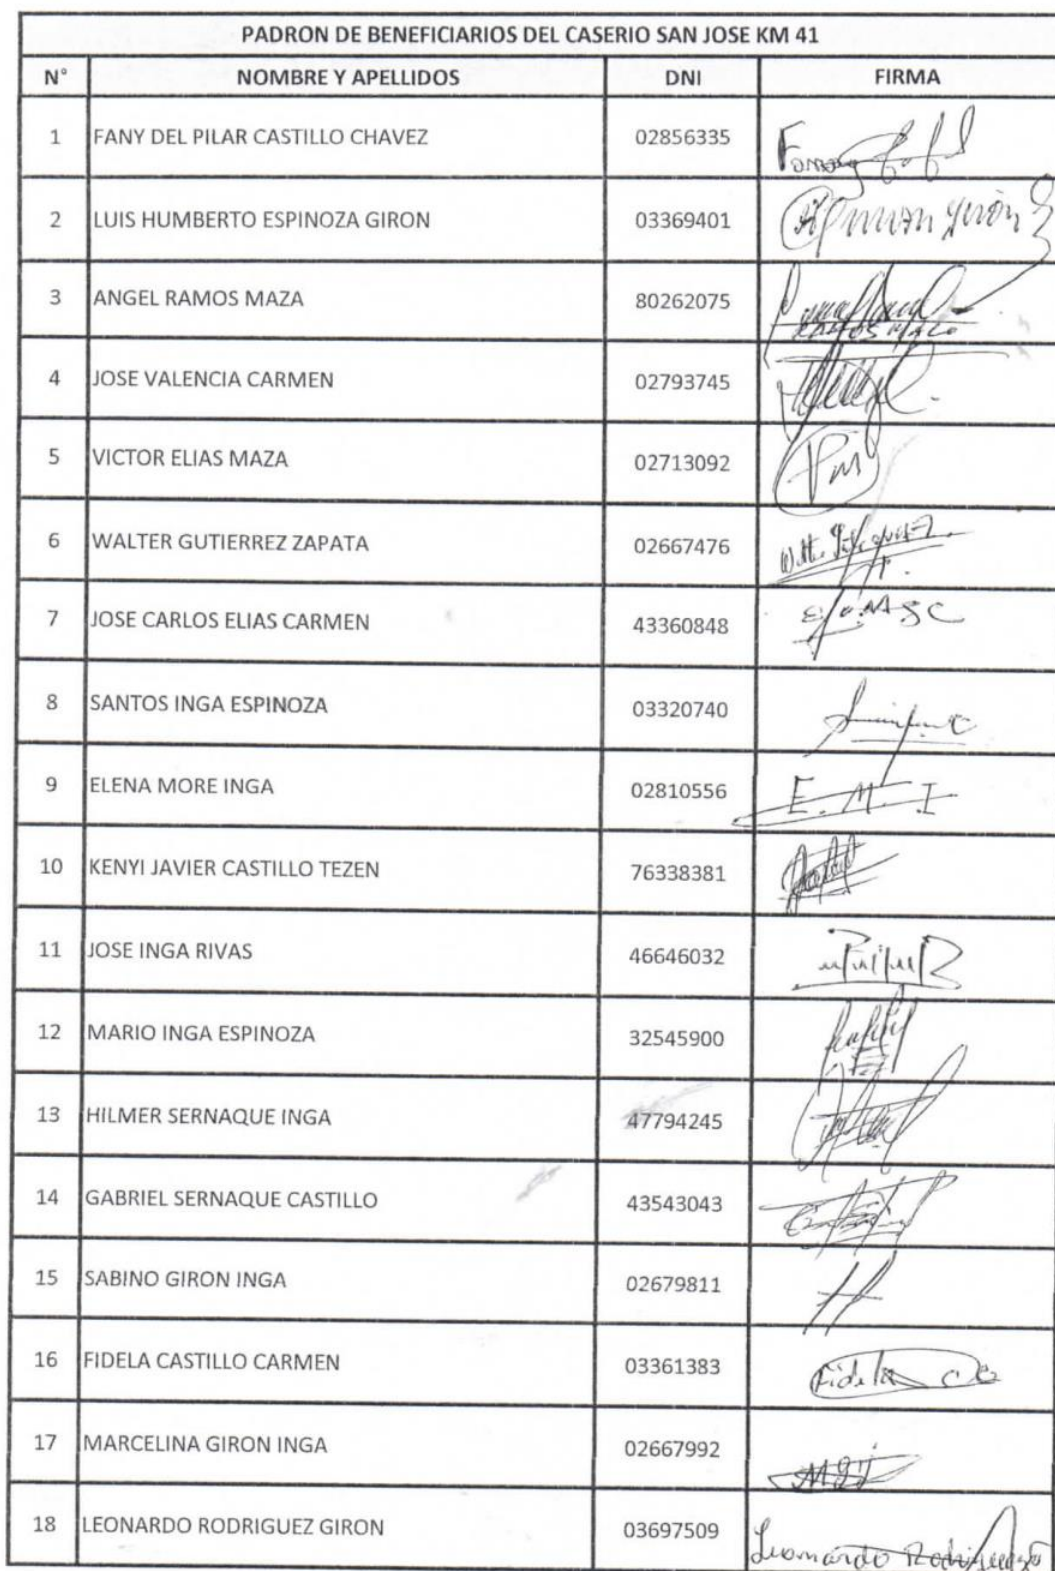 PADRON DE BENEFICIARIOS DEL CASERIO SAN JOSE KM 41
N° NOMBRE Y APELLIDOS DNI FIRMA
1 FANY DEL PILAR CASTILLO CHAVEZ 02856335
2 LUIS HUMBERTO ESPINOZA GIRON 03369401
3 ANGEL RAMOS MAZA 80262075
4 JOSE VALENCIA CARMEN 02793745
5 VICTOR ELIAS MAZA 02713092
6 WALTER GUTIERREZ ZAPATA 02667476
7 JOSE CARLOS ELIAS CARMEN 43360848
8 SANTOS INGA ESPINOZA 03320740
9 ELENA MORE INGA 02810556 E. M. I
10 KENYI JAVIER CASTILLO TEZEN 76338381
11 JOSE INGA RIVAS 46646032
12 MARIO INGA ESPINOZA 32545900
13 HILMER SERNAQUE INGA 47794245
14 GABRIEL SERNAQUE CASTILLO 43543043
15 SABINO GIRON INGA 02679811
16 FIDELA CASTILLO CARMEN 03361383 Fidela
17 MARCELINA GIRON INGA 02667992
18 LEONARDO RODRIGUEZ GIRON 03697509 Leonardo